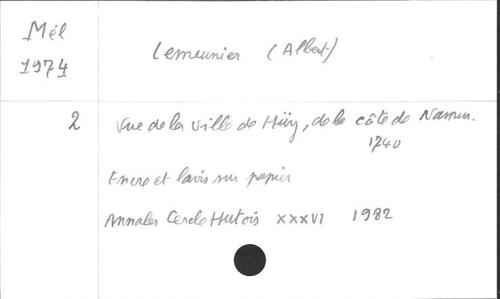 Mél
1974
Lemeunier (Albert)
2
Vue de la ville de Hüy, de la côte de Namur.
1740
Encre et lavis sur papier
Annales Cercle Hutois XXXVI 1982